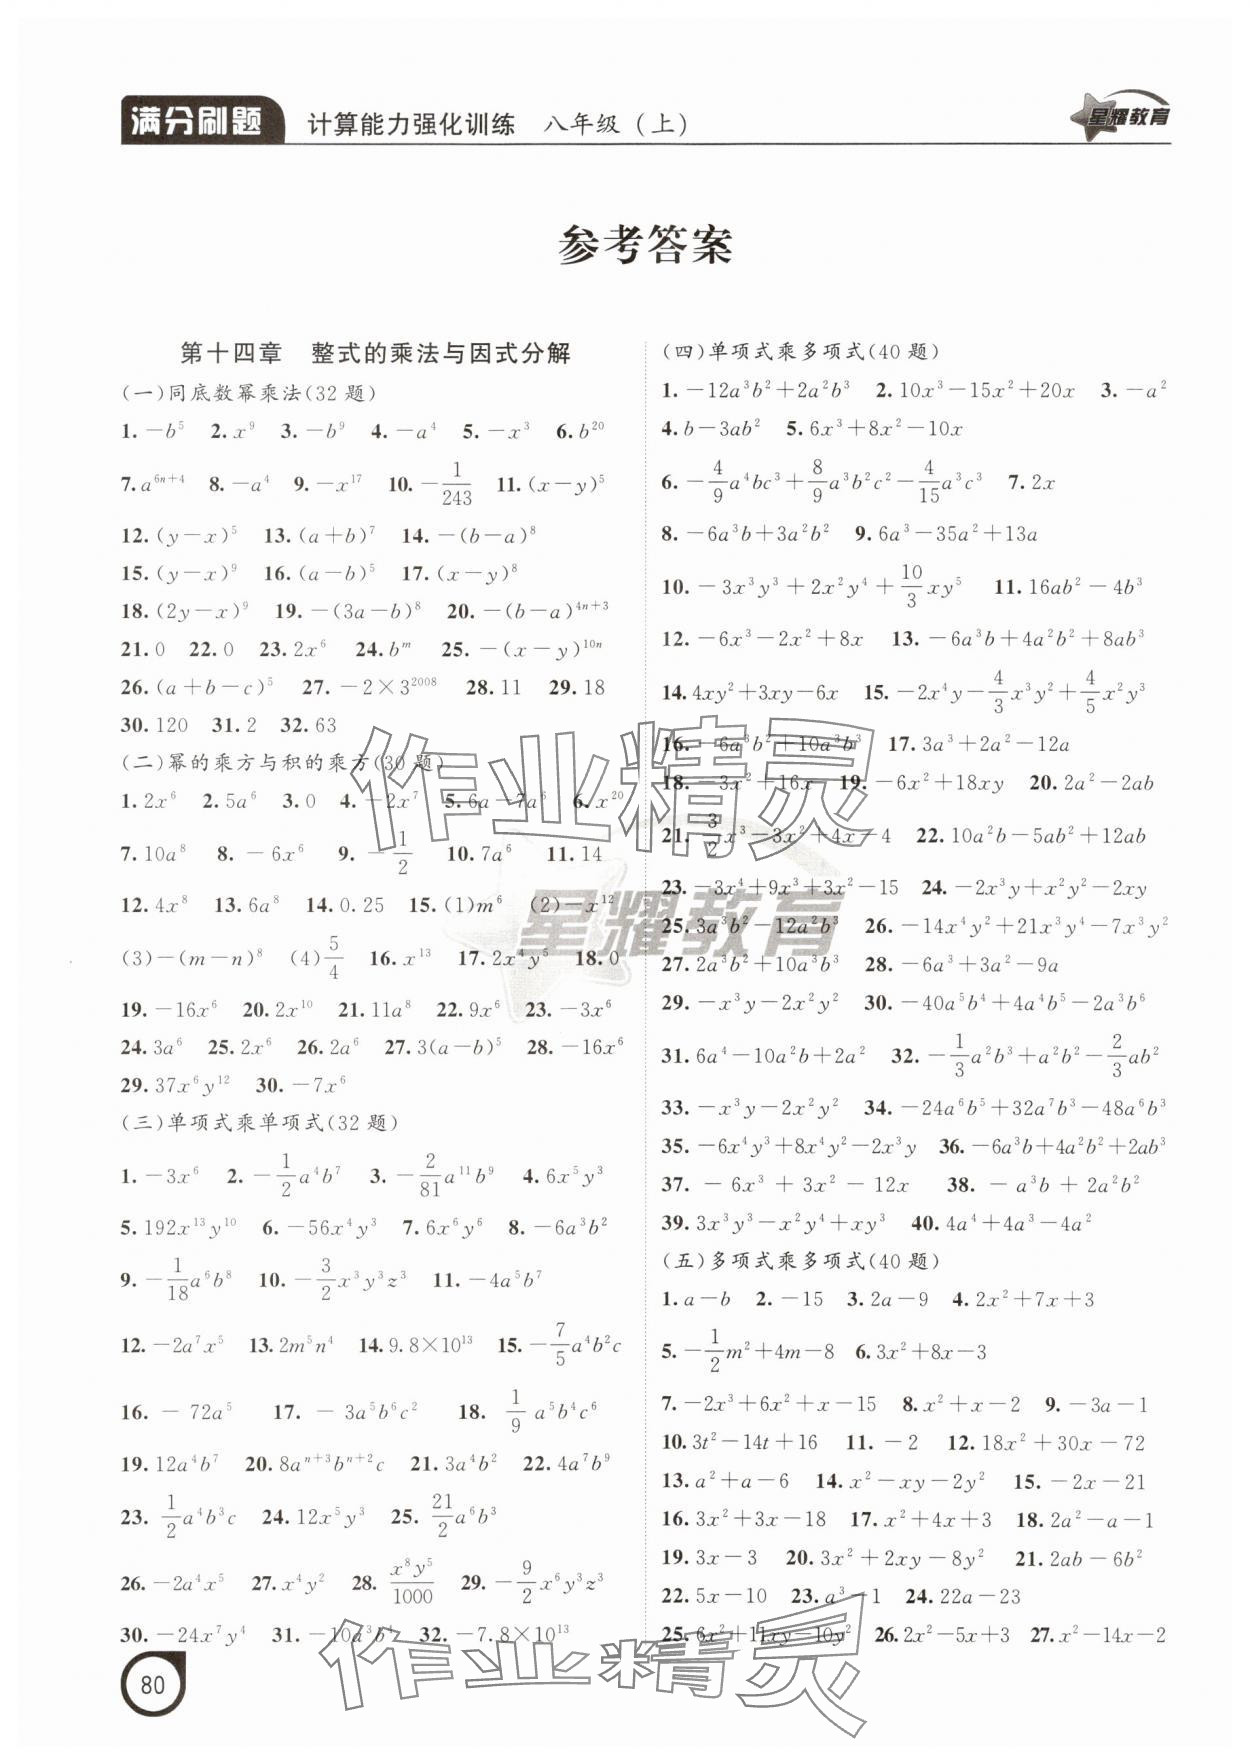 满分刷题 计算能力强化训练 八年级(上) 星耀教育
参考答案
第十四章 整式的乘法与因式分解
(一)同底数幂乘法(32 题)
1. −b⁵ 2. x⁹ 3. −b⁹ 4. −a⁴ 5. −x³ 6. b²⁰
7. a⁶ⁿ⁺⁴ 8. −a⁴ 9. −x¹⁷ 10. −1/243 11. (x−y)⁵
12. (y−x)⁵ 13. (a+b)⁷ 14. −(b−a)⁸
15. (y−x)⁹ 16. (a−b)⁵ 17. (x−y)⁸
18. (2y−x)⁹ 19. −(3a−b)⁸ 20. −(b−a)⁴ⁿ⁺³
21. 0 22. 0 23. 2x⁶ 24. bᵐ 25. −(x−y)¹⁰ⁿ
26. (a+b−c)⁵ 27. −2×3²⁰⁰⁸ 28. 11 29. 18
30. 120 31. 2 32. 63
(二)幂的乘方与积的乘方(30 题)
1. 2x⁶ 2. 5a⁶ 3. 0 4. −2x⁷ 5. 6a−7a⁶ 6. x²⁰
7. 10a⁸ 8. −6x⁶ 9. −1/2 10. 7a⁶ 11. 14
12. 4x⁸ 13. 6a⁸ 14. 0.25 15. (1)m⁶ (2)−x¹²
(3)−(m−n)⁸ (4)5/4 16. x¹³ 17. 2x⁴y⁵ 18. 0
19. −16x⁶ 20. 2x¹⁰ 21. 11a⁸ 22. 9x⁶ 23. −3x⁶
24. 3a⁶ 25. 2x⁶ 26. 2a⁶ 27. 3(a−b)⁵ 28. −16x⁶
29. 37x⁶y¹² 30. −7x⁶
(三)单项式乘单项式(32 题)
1. −3x⁶ 2. −1/2a⁴b⁷ 3. −2/81a¹¹b⁹ 4. 6x⁵y³
5. 192x¹³y¹⁰ 6. −56x⁴y³ 7. 6x⁶y⁶ 8. −6a³b²
9. −1/18a⁶b⁸ 10. −3/2x³y³z³ 11. −4a⁵b⁷
12. −2a⁷x⁵ 13. 2m⁵n⁴ 14. 9.8×10¹³ 15. −7/5a⁴b²c
16. −72a⁵ 17. −3a⁵b⁶c² 18. 1/9a⁵b⁴c⁶
19. 12a⁴b⁷ 20. 8aⁿ⁺³bⁿ⁺²c 21. 3a⁴b² 22. 4a⁷b⁹
23. 1/2a⁴b³c 24. 12x⁵y³ 25. 21/2a⁶b³
26. −2a⁴x⁵ 27. x⁴y² 28. x⁸y⁵/1000 29. −9/2x⁶y³z³
30. −24x⁷y⁴ 31. −10a³b⁴ 32. −7.8×10¹³
80
(四)单项式乘多项式(40 题)
1. −12a³b²+2a²b³ 2. 10x³−15x²+20x 3. −a²
4. b−3ab² 5. 6x³+8x²−10x
6. −4/9a⁴bc³+8/9a³b²c²−4/15a³c³ 7. 2x
8. −6a³b+3a²b² 9. 6a³−35a²+13a
10. −3x³y³+2x²y⁴+10/3xy⁵ 11. 16ab²−4b³
12. −6x³−2x²+8x 13. −6a³b+4a²b²+8ab³
14. 4xy²+3xy−6x 15. −2x⁴y−4/3x³y²+4/5x²y³
16. −6a³b²+10a³b³ 17. 3a³+2a²−12a
18. −3x²+16x 19. −6x²+18xy 20. 2a²−2ab
21. 3/2x³−3x²+4x−4 22. 10a²b−5ab²+12ab
23. −3x⁴+9x³+3x²−15 24. −2x³y+x²y²−2xy
25. 3a³b²−12a²b³ 26. −14x⁴y²+21x³y⁴−7x³y²
27. 2a³b²+10a³b³ 28. −6a³+3a²−9a
29. −x³y−2x²y² 30. −40a⁵b⁴+4a⁴b⁵−2a³b⁶
31. 6a⁴−10a²b+2a² 32. −1/3a²b³+a²b²−2/3ab²
33. −x³y−2x²y² 34. −24a⁶b⁵+32a⁷b³−48a⁶b³
35. −6x⁴y³+8x⁴y²−2x³y 36. −6a³b+4a²b²+2ab³
37. −6x³+3x²−12x 38. −a³b+2a²b²
39. 3x³y³−x²y⁴+xy³ 40. 4a⁴+4a³−4a²
(五)多项式乘多项式(40 题)
1. a−b 2. −15 3. 2a−9 4. 2x²+7x+3
5. −1/2m²+4m−8 6. 3x²+8x−3
7. −2x³+6x²+x−15 8. x²+x−2 9. −3a−1
10. 3t²−14t+16 11. −2 12. 18x²+30x−72
13. a²+a−6 14. x²−xy−2y² 15. −2x−21
16. 3x²+3x−18 17. x²+4x+3 18. 2a²−a−1
19. 3x−3 20. 3x²+2xy−8y² 21. 2ab−6b²
22. 5x−10 23. a³−1 24. 22a−23
25. 6x²+11xy−10y² 26. 2x²−5x+3 27. x²−14x−2
作业精灵
星耀教育
作业精灵